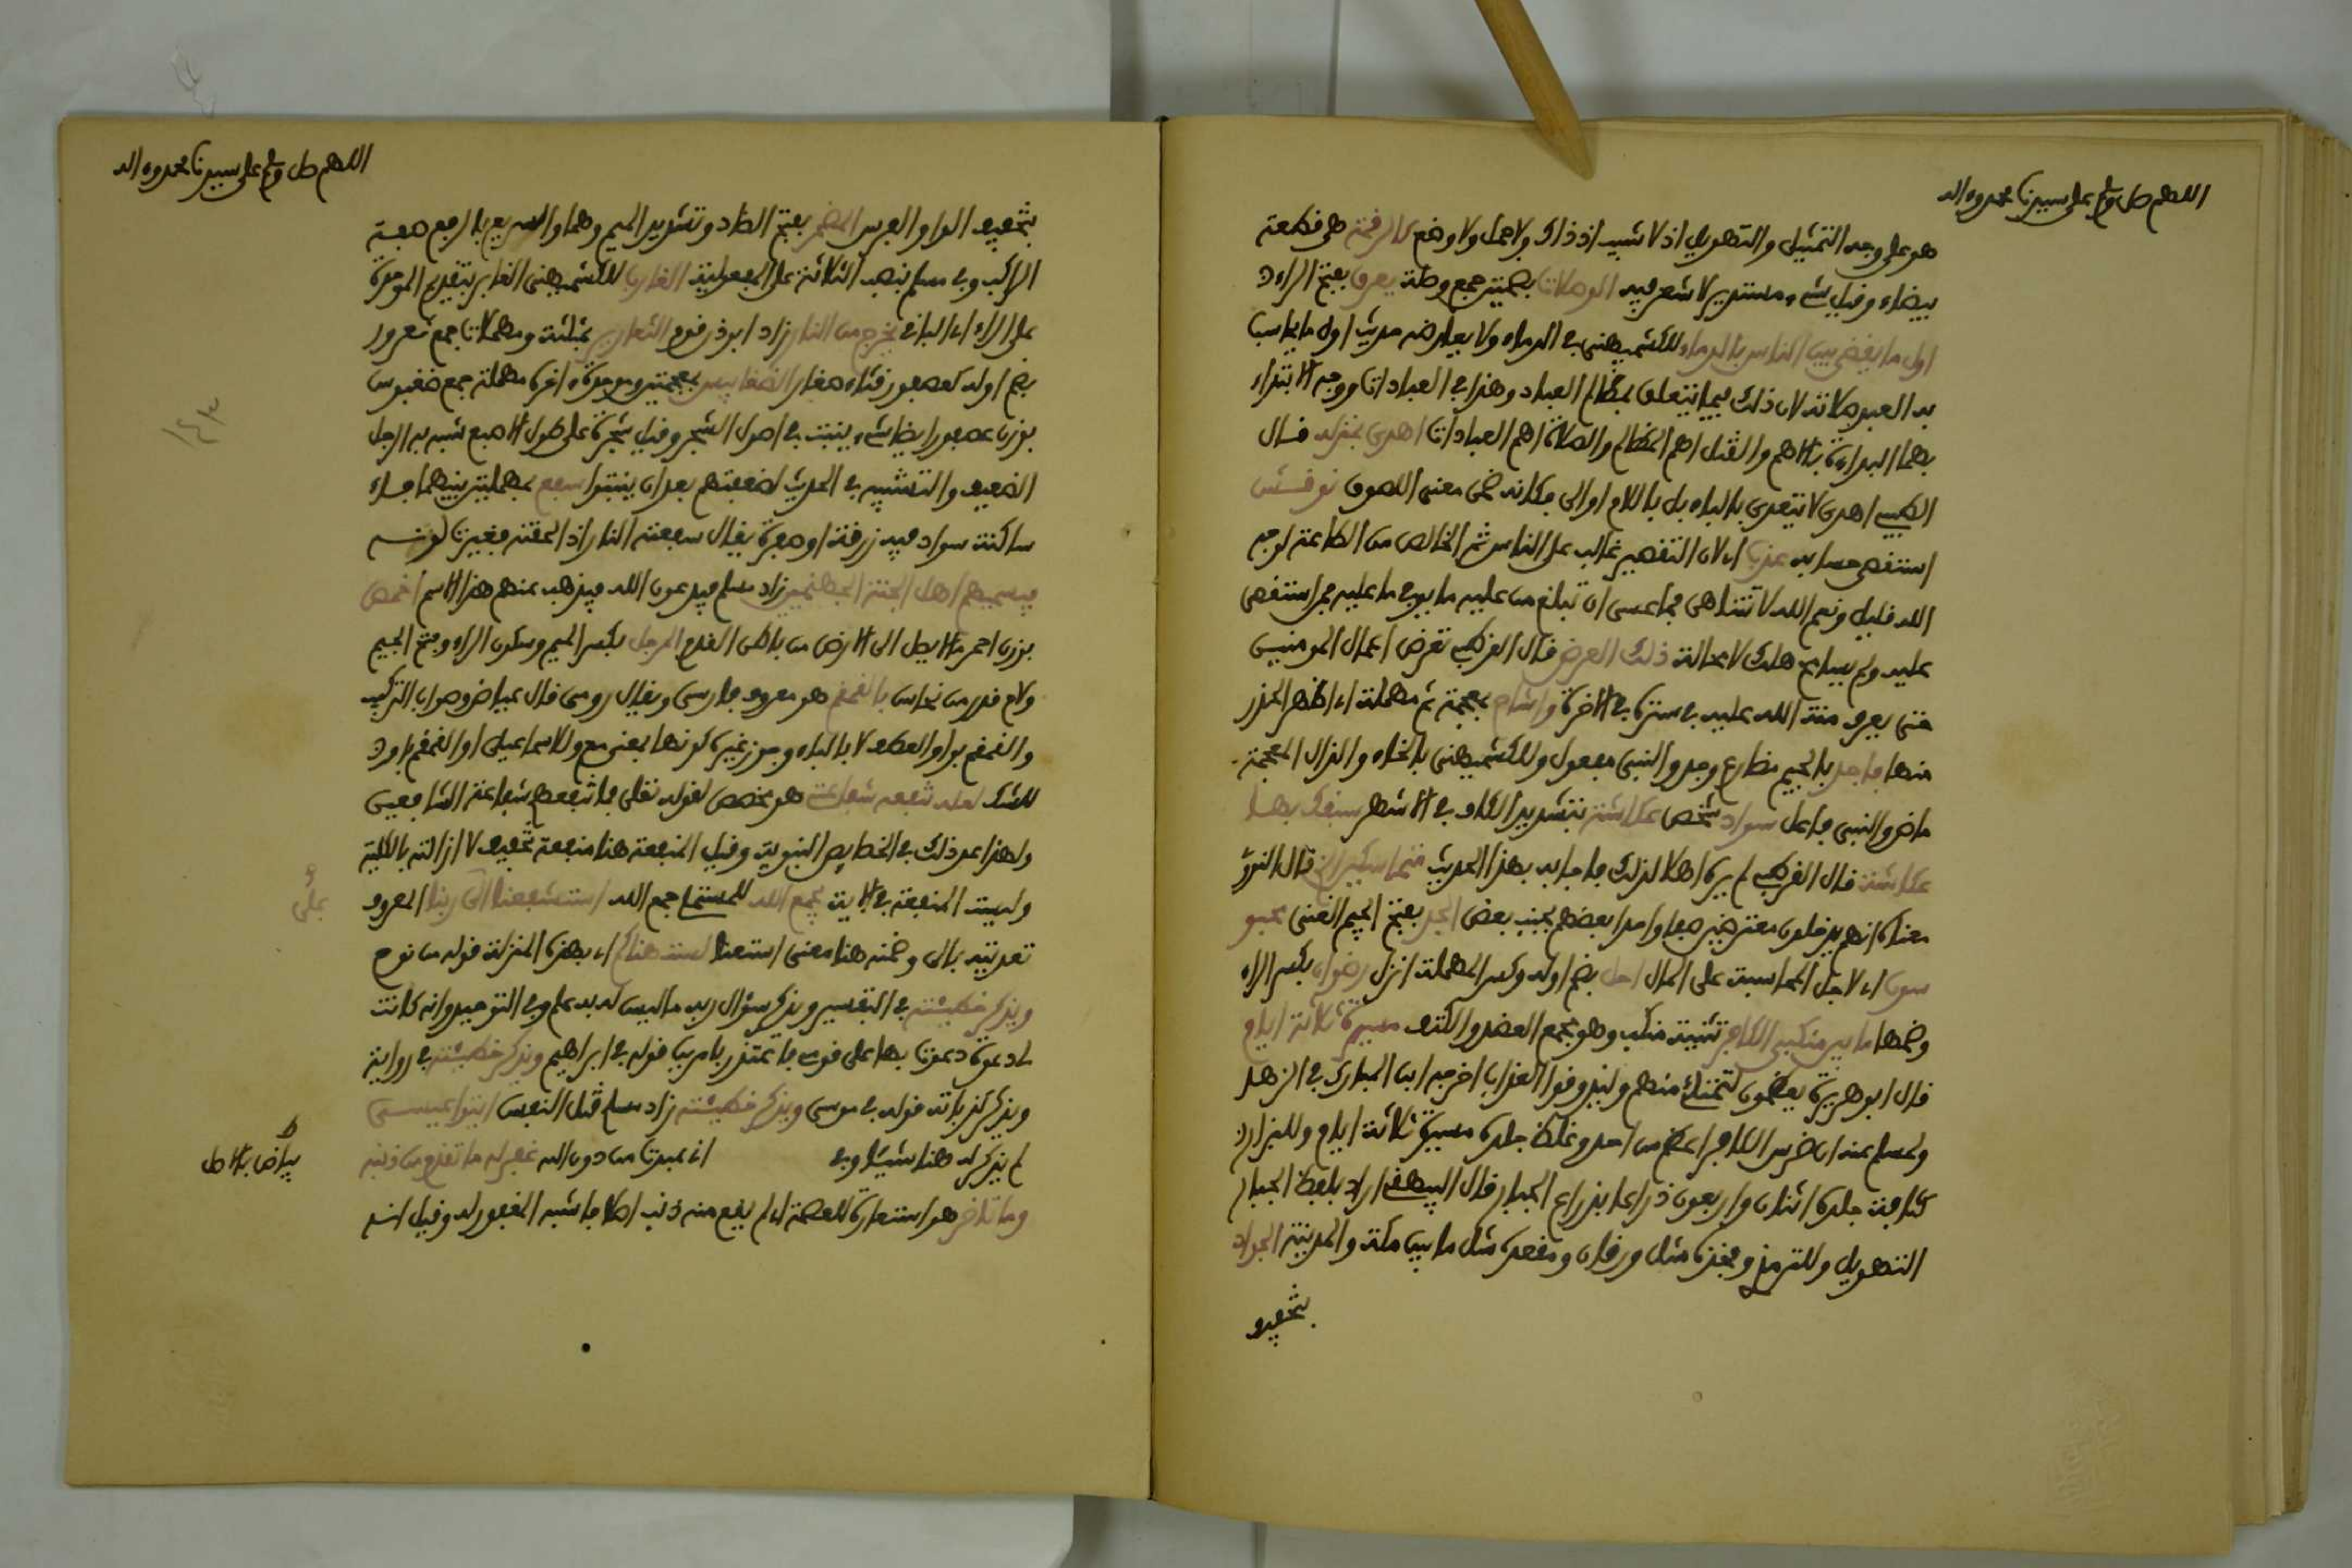 اللهم صل وسلم على سيدنا محمد وءاله
هو على وجه التمثيل والتهويل اذ لا شيب اذ ذاك ولا حمل ولا وضع كالرقمة هى قطعة
بيضاء وقيل شىء مستدير لا شعر فيه الوصلات بضمتين جمع وصلة يعرق بفتح الراء
اول ما يقضى بين الناس بالدماء للكشميهنى فى الدماء ولا يعارضه حديث اول ما يحاسب
به العبد صلاته لان ذلك فيما يتعلق بمظالم العباد وهذا فى العبادات ووجه الابتداء
بهما البداءة بالاهم والقتل اهم المظالم والصلاة اهم العبادات اهدى بمنزله قال
الطيبى اهدى لا يتعدى بالباء بل باللام او الى فكانه ضمن معنى اللصوق نوقش
استقصى حسابه عذب اى لان التقصير غالب على الناس ثم الخالص من الطاعة لوجه
الله قليل ونعم الله لا تتناهى فما عسى ان تبلغ من عليه ما يوفى ما عليه فمن استقصى
عليه ولم يسامح هلك لا محالة ذلك العرض قال القرطبى تعرض اعمال المومنين
حتى يعرف منة الله عليه فى سترها فى الاخرة واشاح بمعجمة ثم مهملة اى اظهر الحذر
منها فاجد بالجيم مضارع وجد والنبى مفعول وللكشميهنى بالخاء والذال المعجمة
ماض والنبى فاعل سواد شخص عكاشة بتشديد الكاف فى الاشهر سبقك بها
عكاشة قال القرطبى لم يره اهلا لذلك فاجابه بهذا الحديث متماسكين الخ قال النووى
معناه انهم يدخلون معترضين صفا واحدا بعضهم بجنب بعض الجد بفتح الجيم الغنى محبو
سون اى لاجل المحاسبة على المال احل بضم اوله وكسر المهملة انزل رضوان بكسر الراء
وضمها ما بين منكبى الكافر تثنية منكب وهو مجمع العضد والكتف مسيرة ثلاثة ايام
قال ابو هريرة يعظمون لتمتلئ منهم وليذوقوا العذاب اخرجه ابن المبارك فى الزهد
ولمسلم عنه ان ضرس الكافر اعظم من احد وغلظ جلده مسيرة ثلاثة ايام وللبزار
كثافة جلده اثنان واربعون ذراعا بذراع الجبار قال البيهقى اراد بلفظ الجبار
التهويل وللترمذى وفخذه مثل ورقان ومقعده مثل ما بين مكة والمدينة الجواد
بتخفيف
اللهم صل وسلم على سيدنا محمد وءاله
بتخفيف الواو الفرس المضمر بفتح الضاد وتشديد الميم وهما والسريع بالرفع صفة
الراكب وفى مسلم بنصب الثلاثة على المفعولية الغارب للكشميهنى الغابر بتقديم الموحدة
على الراء اى الباقى يخرج من النار زاد ابو ذر قوم الثعارير بمثلثة ومهملات جمع ثعرور
بضم اوله كعصفور قثاء صغار الضغابيس بمعجمتين وموحدة واخره مهملة جمع ضغبوس
بوزن عصفور ايضا شىء ينبت فى اصول الشجر وقيل شجرة على طول الاصبع شبه به الرجل
الضعيف والتشبيه فى الحديث لصفتهم بعد ان ينبتوا سفع بمهملتين بينهما فاء
ساكنة سواد فيه زرقة او صفرة يقال سفعته النار اذا لحقته فغيرت لونه
فيسميهم اهل الجنة الجهنميين زاد مسلم فيدعون الله فيذهب عنهم هذا الاسم اخمص
بوزن احمر ما لا يصل الى الارض من باطن القدم المرجل بكسر الميم وسكون الراء وفتح الجيم
ولام قدر من نحاس بالقمقم هو معروف فارسى ويقال رومى قال عياض وصواب التركيب
والقمقم بواو العطف لا بالباء وجوز غيره كونها بمعنى مع وللاسماعيلى او القمقم باو
للشك لعله تنفعه شفاعتى هو مخصص لقوله تعلى فما تنفعهم شفاعة الشافعين
ولهذا عد ذلك فى الخصايص النبوية وقيل المنفعة هنا منفعة تخفيف لا ازالة بالكلية
وليست المنفعة فى الاية يجمع الله للمستملى جمع الله استشفعنا الى ربنا المعروف
على
تعديته بالى وضمنه هنا معنى استعنا لست هناكم اى بهذه المنزلة قوله من نوح
ويذكر خطيئته فى التفسير ويذكر سؤال ربه ما ليس له به علم وفى التوحيد وانه كانت
لى دعوة دعوت بها على قومى فاعتذر بامرين قوله فى ابراهيم ويذكر خطيئته فى رواية
ويذكر كذباته قوله فى موسى ويذكر خطيئته زاد مسلم قتل النفس ايتوا عيسى
لم يذكر له هنا شيئا وفى انى عبدت من دون الله غفر له ما تقدم من ذنبه
بياض بالاصل
وما تاخر هو استعارة للعصمة اى لم يقع منه ذنب اصلا فاشبه المغفور له وقيل انه
١٤٣